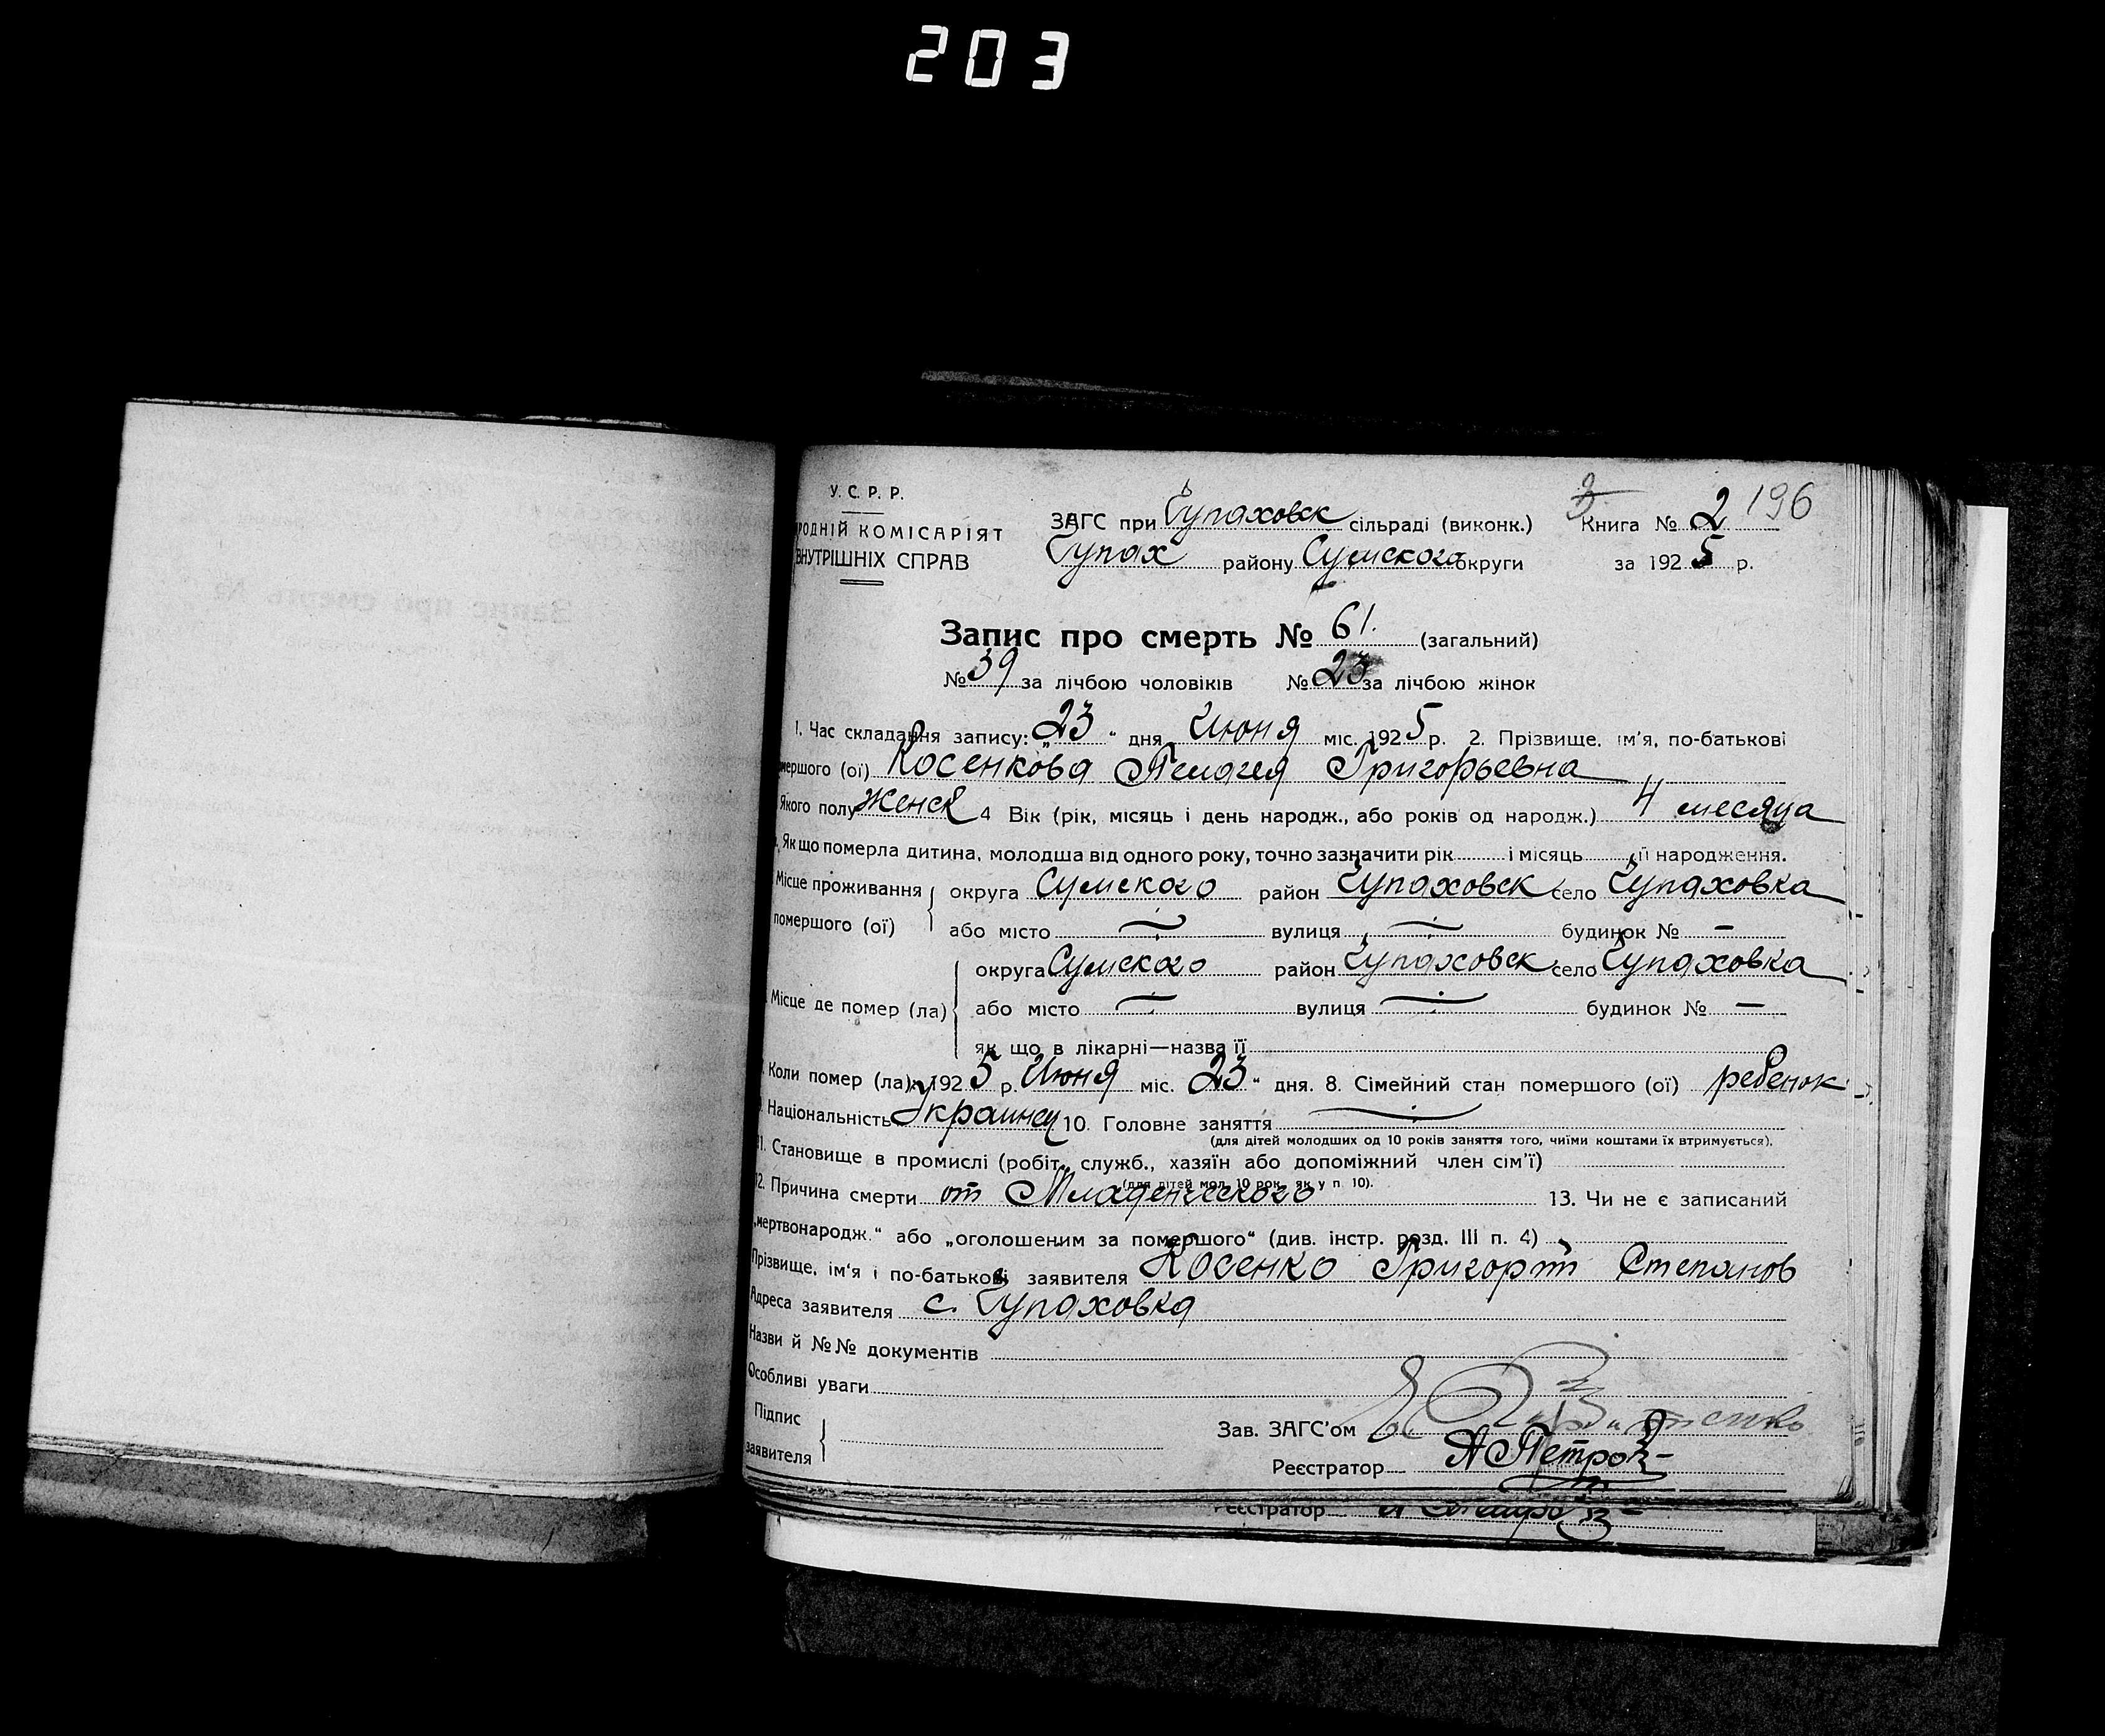 203
У. С. Р. Р.
РОДНІЙ КОМІСАРІЯТ
ВНУТРІШНІХ СПРАВ
ЗАГС при Чупаховск сільраді (виконк.)
Чупах району Сумского округи
Книга № 2 196
за 1925 р.
Запис про смерть № 61. (загальний)
№ 39 за лічбою чоловіків № 23 за лічбою жінок
1. Час складання запису: „23“ дня Июня міс. 1925 р. 2. Прізвище, ім'я, по-батькові
мершого (ої) Косенкова Пелагея Григорьевна
Якого полу женск 4 Вік (рік, місяць і день народж., або років од народж.) 4 месяца
Як що померла дитина, молодша від одного року, точно зазначити рік і місяць її народження.
Місце проживання помершого (ої) округа Сумского район Чупаховск село Чупаховка
або місто — вулиця — будинок № —
Місце де помер (ла) округа Сумского район Чупаховск село Чупаховка
або місто — вулиця — будинок № —
як що в лікарні—назва її
Коли помер (ла): 1925 р. Июня міс. 23“ дня. 8. Сімейний стан помершого (ої) ребенок
Національність Украинец 10. Головне заняття —
(для дітей молодших од 10 років заняття того, чиїми коштами їх втримується).
11. Становище в промислі (робіт., служб., хазяїн або допоміжний член сім'ї)
(для дітей мол. 10 рок. як у п. 10).
12. Причина смерти от Младенческого 13. Чи не є записаний
„мертвонародж.“ або „оголошеним за помершого“ (див. інстр. розд. III п. 4)
Прізвище, ім'я і по-батькові заявителя Косенко Григорій Степанов
Адреса заявителя с. Чупаховка
Назви й №№ документів
Особливі уваги
Підпис заявителя
Зав. ЗАГС'ом
Реєстратор А Петров
Реєстратор А Петров